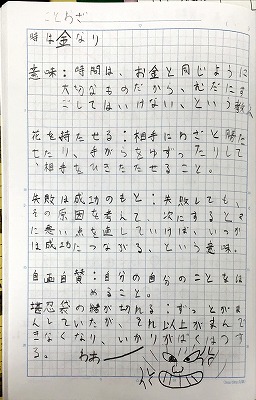 ことわざ
時は金なり
意味：時間は、お金と同じように
大切なものだから、むだにす
ごしてはいけない、という教え
花を持たせる：相手にわざと勝た
せたり、手がらをゆずったりして、
相手をひきたたせること。
失敗は成功のもと：失敗しても、
その原因を考えて、次にするとき
に悪い点を直していけば、いつか
は成功につながる、という意味。
自画自賛：自分の自分のことをほ
めること。
堪忍袋の緒が切れる：ずっとがま
んしていたが、それ以上がまんで
きなくなり、いかりがばくはつす
る。
わあー